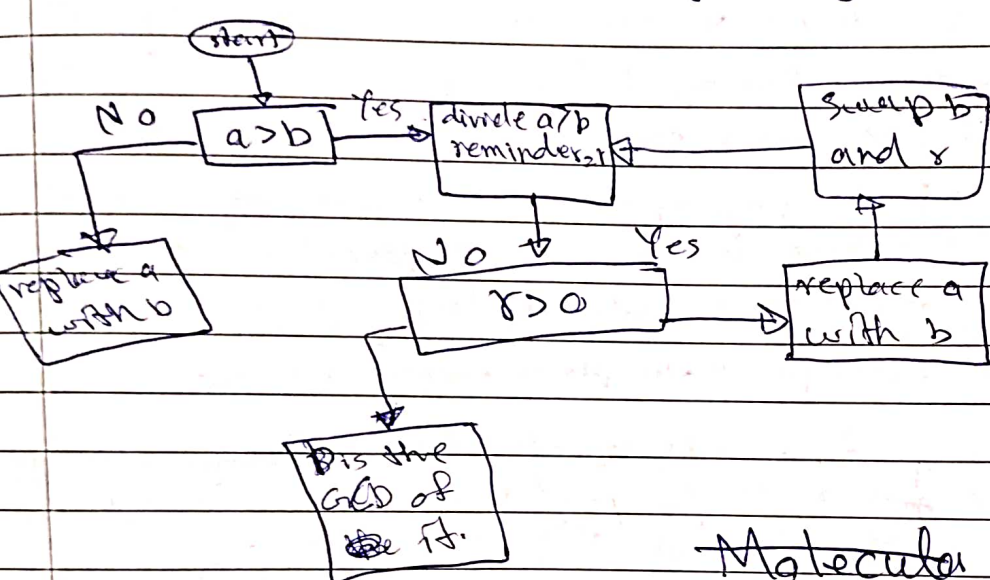 start
No
a>b
Yes
divide a/b
reminder, r
swap b
and r
replace a
with b
No
Yes
r>0
replace a
with b
B is the
GCD of
it.
Molecula